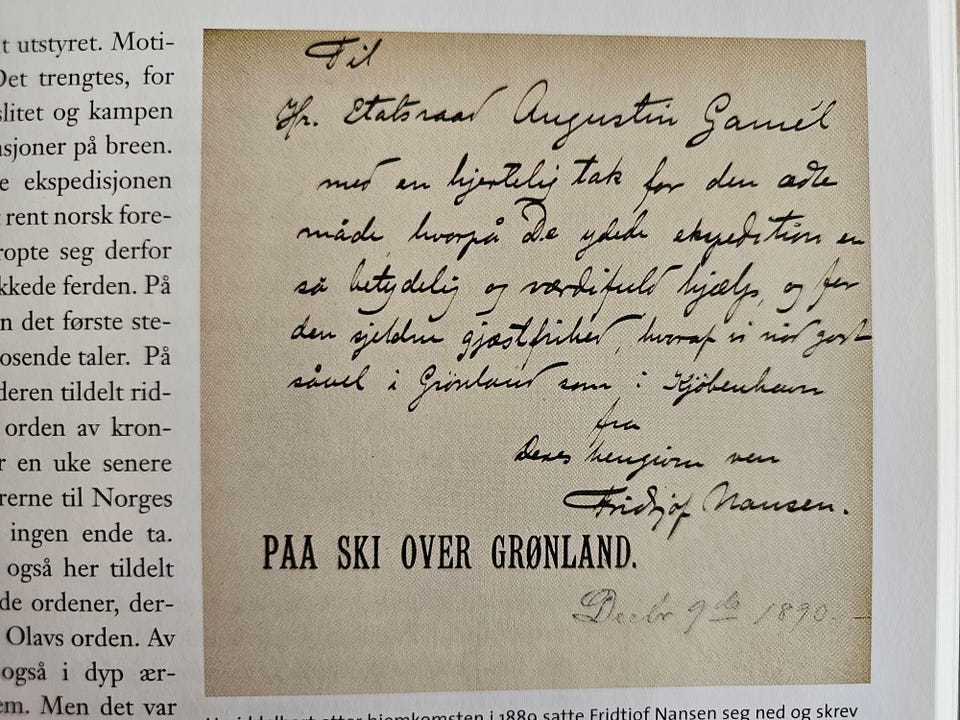 t utstyret. Moti-
Det trengtes, for
slitet og kampen
asjoner på breen.
e ekspedisjonen
rent norsk fore-
ropte seg derfor
kkede ferden. På
n det første ste-
osende taler. På
deren tildelt rid-
orden av kron-
r en uke senere
rerne til Norges
ingen ende ta.
også her tildelt
de ordener, der-
Olavs orden. Av
også i dyp ær-
em. Men det var
Til
Hr. Etatsraad Augustin Gamél
med en hjertelig tak for den ædle
måde hvorpå De ydede ekspeditionen en
så betydelig og værdifuld hjælp, og for
den sjeldne gjæstfrihed, hvoraf vi nød godt
såvel i Grønland som i Kjöbenhavn
fra
Deres hengivne ven
Fridtjof Nansen.
PAA SKI OVER GRØNLAND.
Decbr 9de 1890.
etter hjemkomsten i 1889 satte Fridtjof Nansen seg ned og skrev